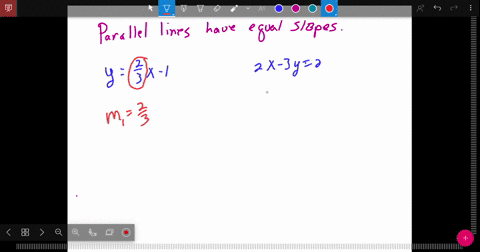 Parallel lines have equal slopes.
y = 2/3 x - 1
2x - 3y = 2
m₁ = 2/3